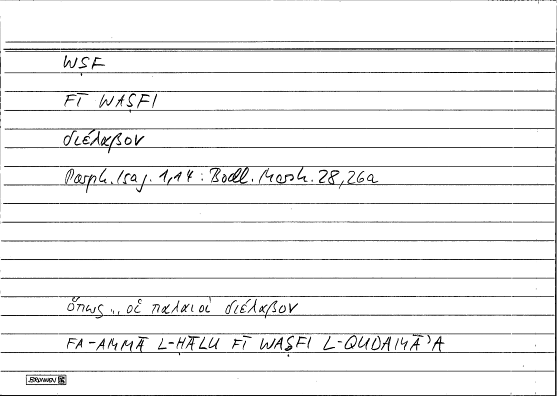 WṢF
FĪ WAṢFI
διέλαβον
Porph. Isag. 1,14 : Bodl. Marsh. 28,26a
ὅπως .. οἱ παλαιοὶ διέλαβον
FA-AMMĀ L-ḤĀLU FĪ WAṢFI L-QUDAMĀʾA